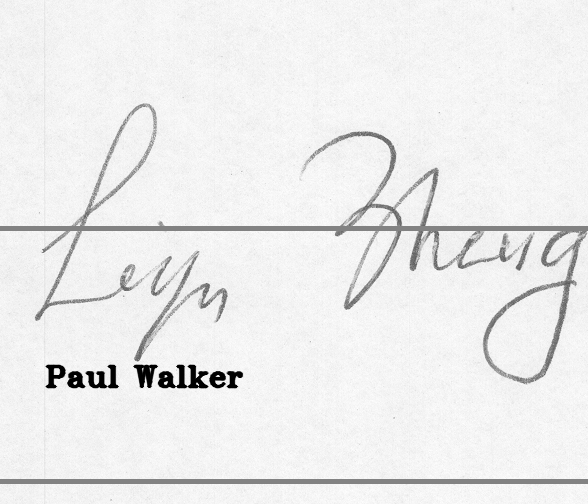 Leyn Zheng
Paul Walker